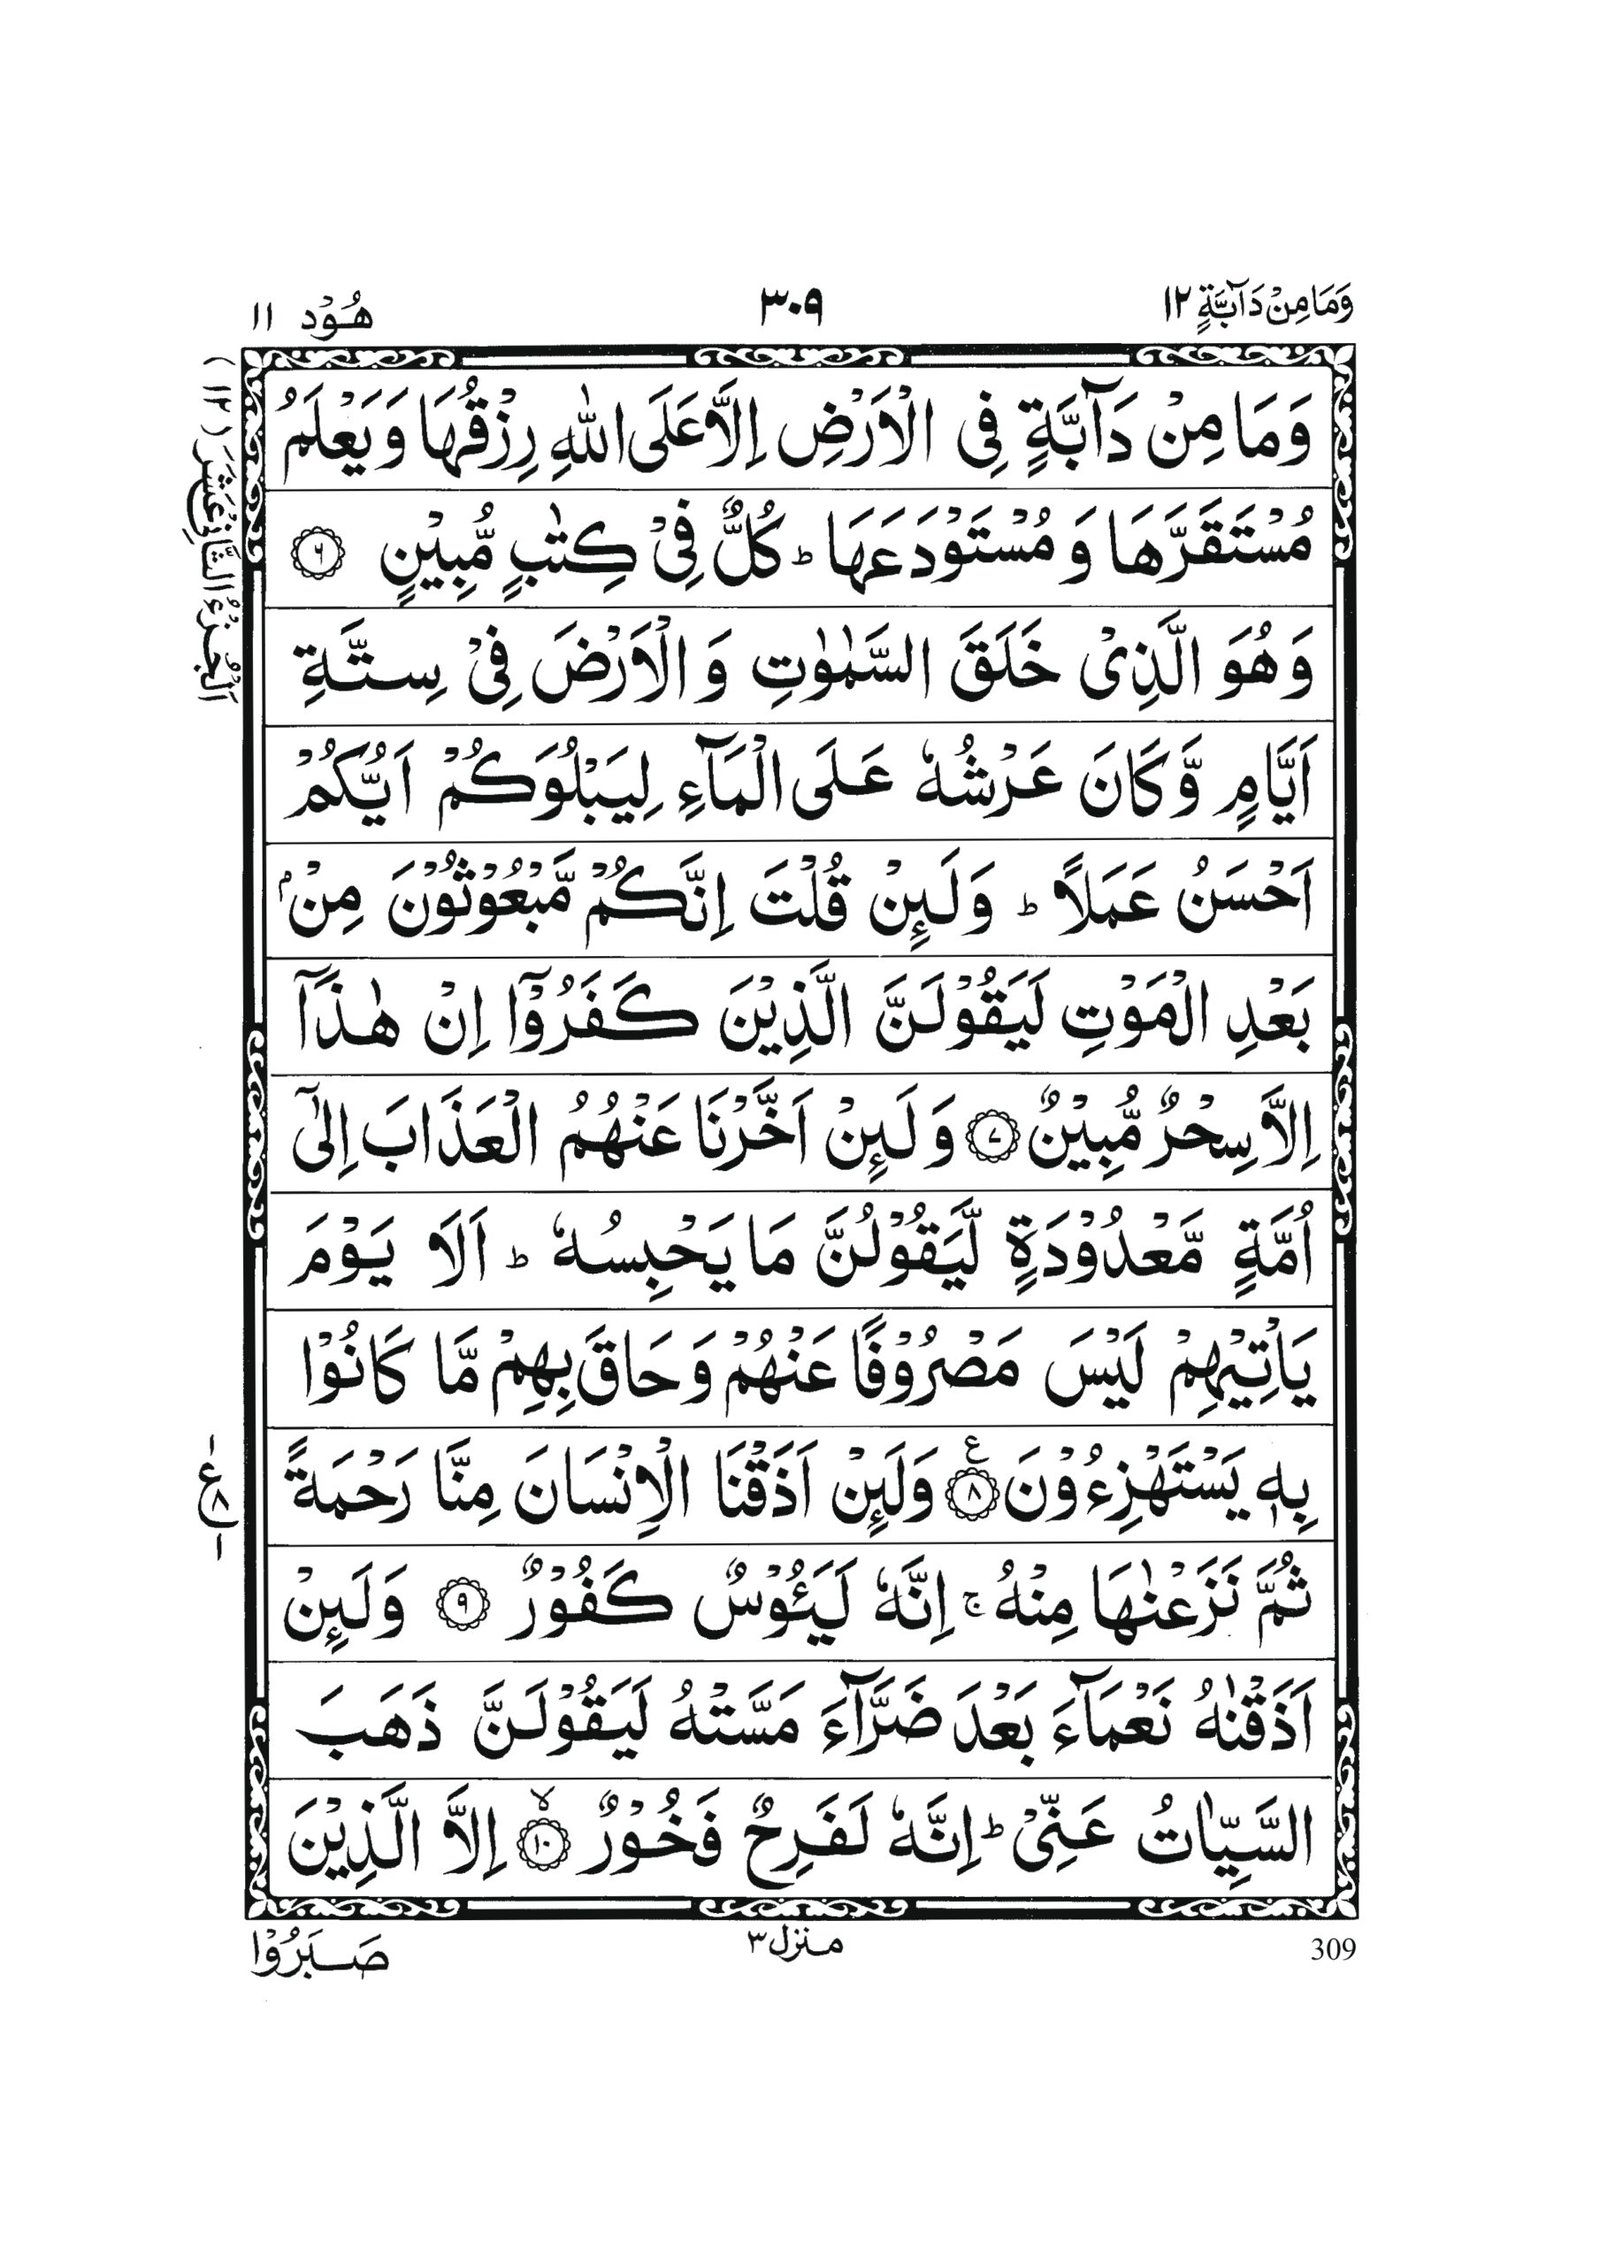 وَمَا مِنْ دَآبَّةٍ ١٢
٣٠٩
هُوْد ١١
وَمَا مِنْ دَآبَّةٍ فِى الْاَرْضِ اِلَّا عَلَى اللّٰهِ رِزْقُهَا وَيَعْلَمُ
مُسْتَقَرَّهَا وَ مُسْتَوْدَعَهَا ؕ كُلٌّ فِىْ كِتٰبٍ مُّبِيْنٍ ۝٦
وَ هُوَ الَّذِىْ خَلَقَ السَّمٰوٰتِ وَ الْاَرْضَ فِىْ سِتَّةِ
اَيَّامٍ وَّ كَانَ عَرْشُهٗ عَلَى الْمَآءِ لِيَبْلُوَكُمْ اَيُّكُمْ
اَحْسَنُ عَمَلًا ؕ وَلَئِنْ قُلْتَ اِنَّكُمْ مَّبْعُوْثُوْنَ مِنْۢ
بَعْدِ الْمَوْتِ لَيَقُوْلَنَّ الَّذِيْنَ كَفَرُوْۤا اِنْ هٰذَاۤ
اِلَّا سِحْرٌ مُّبِيْنٌ ۝٧ وَ لَئِنْ اَخَّرْنَا عَنْهُمُ الْعَذَابَ اِلٰٓى
اُمَّةٍ مَّعْدُوْدَةٍ لَّيَقُوْلُنَّ مَا يَحْبِسُهٗ ؕ اَلَا يَوْمَ
يَاْتِيْهِمْ لَيْسَ مَصْرُوْفًا عَنْهُمْ وَ حَاقَ بِهِمْ مَّا كَانُوْا
بِهٖ يَسْتَهْزِءُوْنَ ۝٨ ع وَلَئِنْ اَذَقْنَا الْاِنْسَانَ مِنَّا رَحْمَةً
ثُمَّ نَزَعْنٰهَا مِنْهُ ۚ اِنَّهٗ لَيَئُوْسٌ كَفُوْرٌ ۝٩ وَلَئِنْ
اَذَقْنٰهُ نَعْمَآءَ بَعْدَ ضَرَّآءَ مَسَّتْهُ لَيَقُوْلَنَّ ذَهَبَ
السَّيِّاٰتُ عَنِّىْ ؕ اِنَّهٗ لَفَرِحٌ فَخُوْرٌ ۝١٠ ۙ اِلَّا الَّذِيْنَ
اَلْجُزْءُ الثَّانِىْ عَشَرَ (١٢)
١ ع ٨ ١
صَبَرُوْا
منزل ٣
309